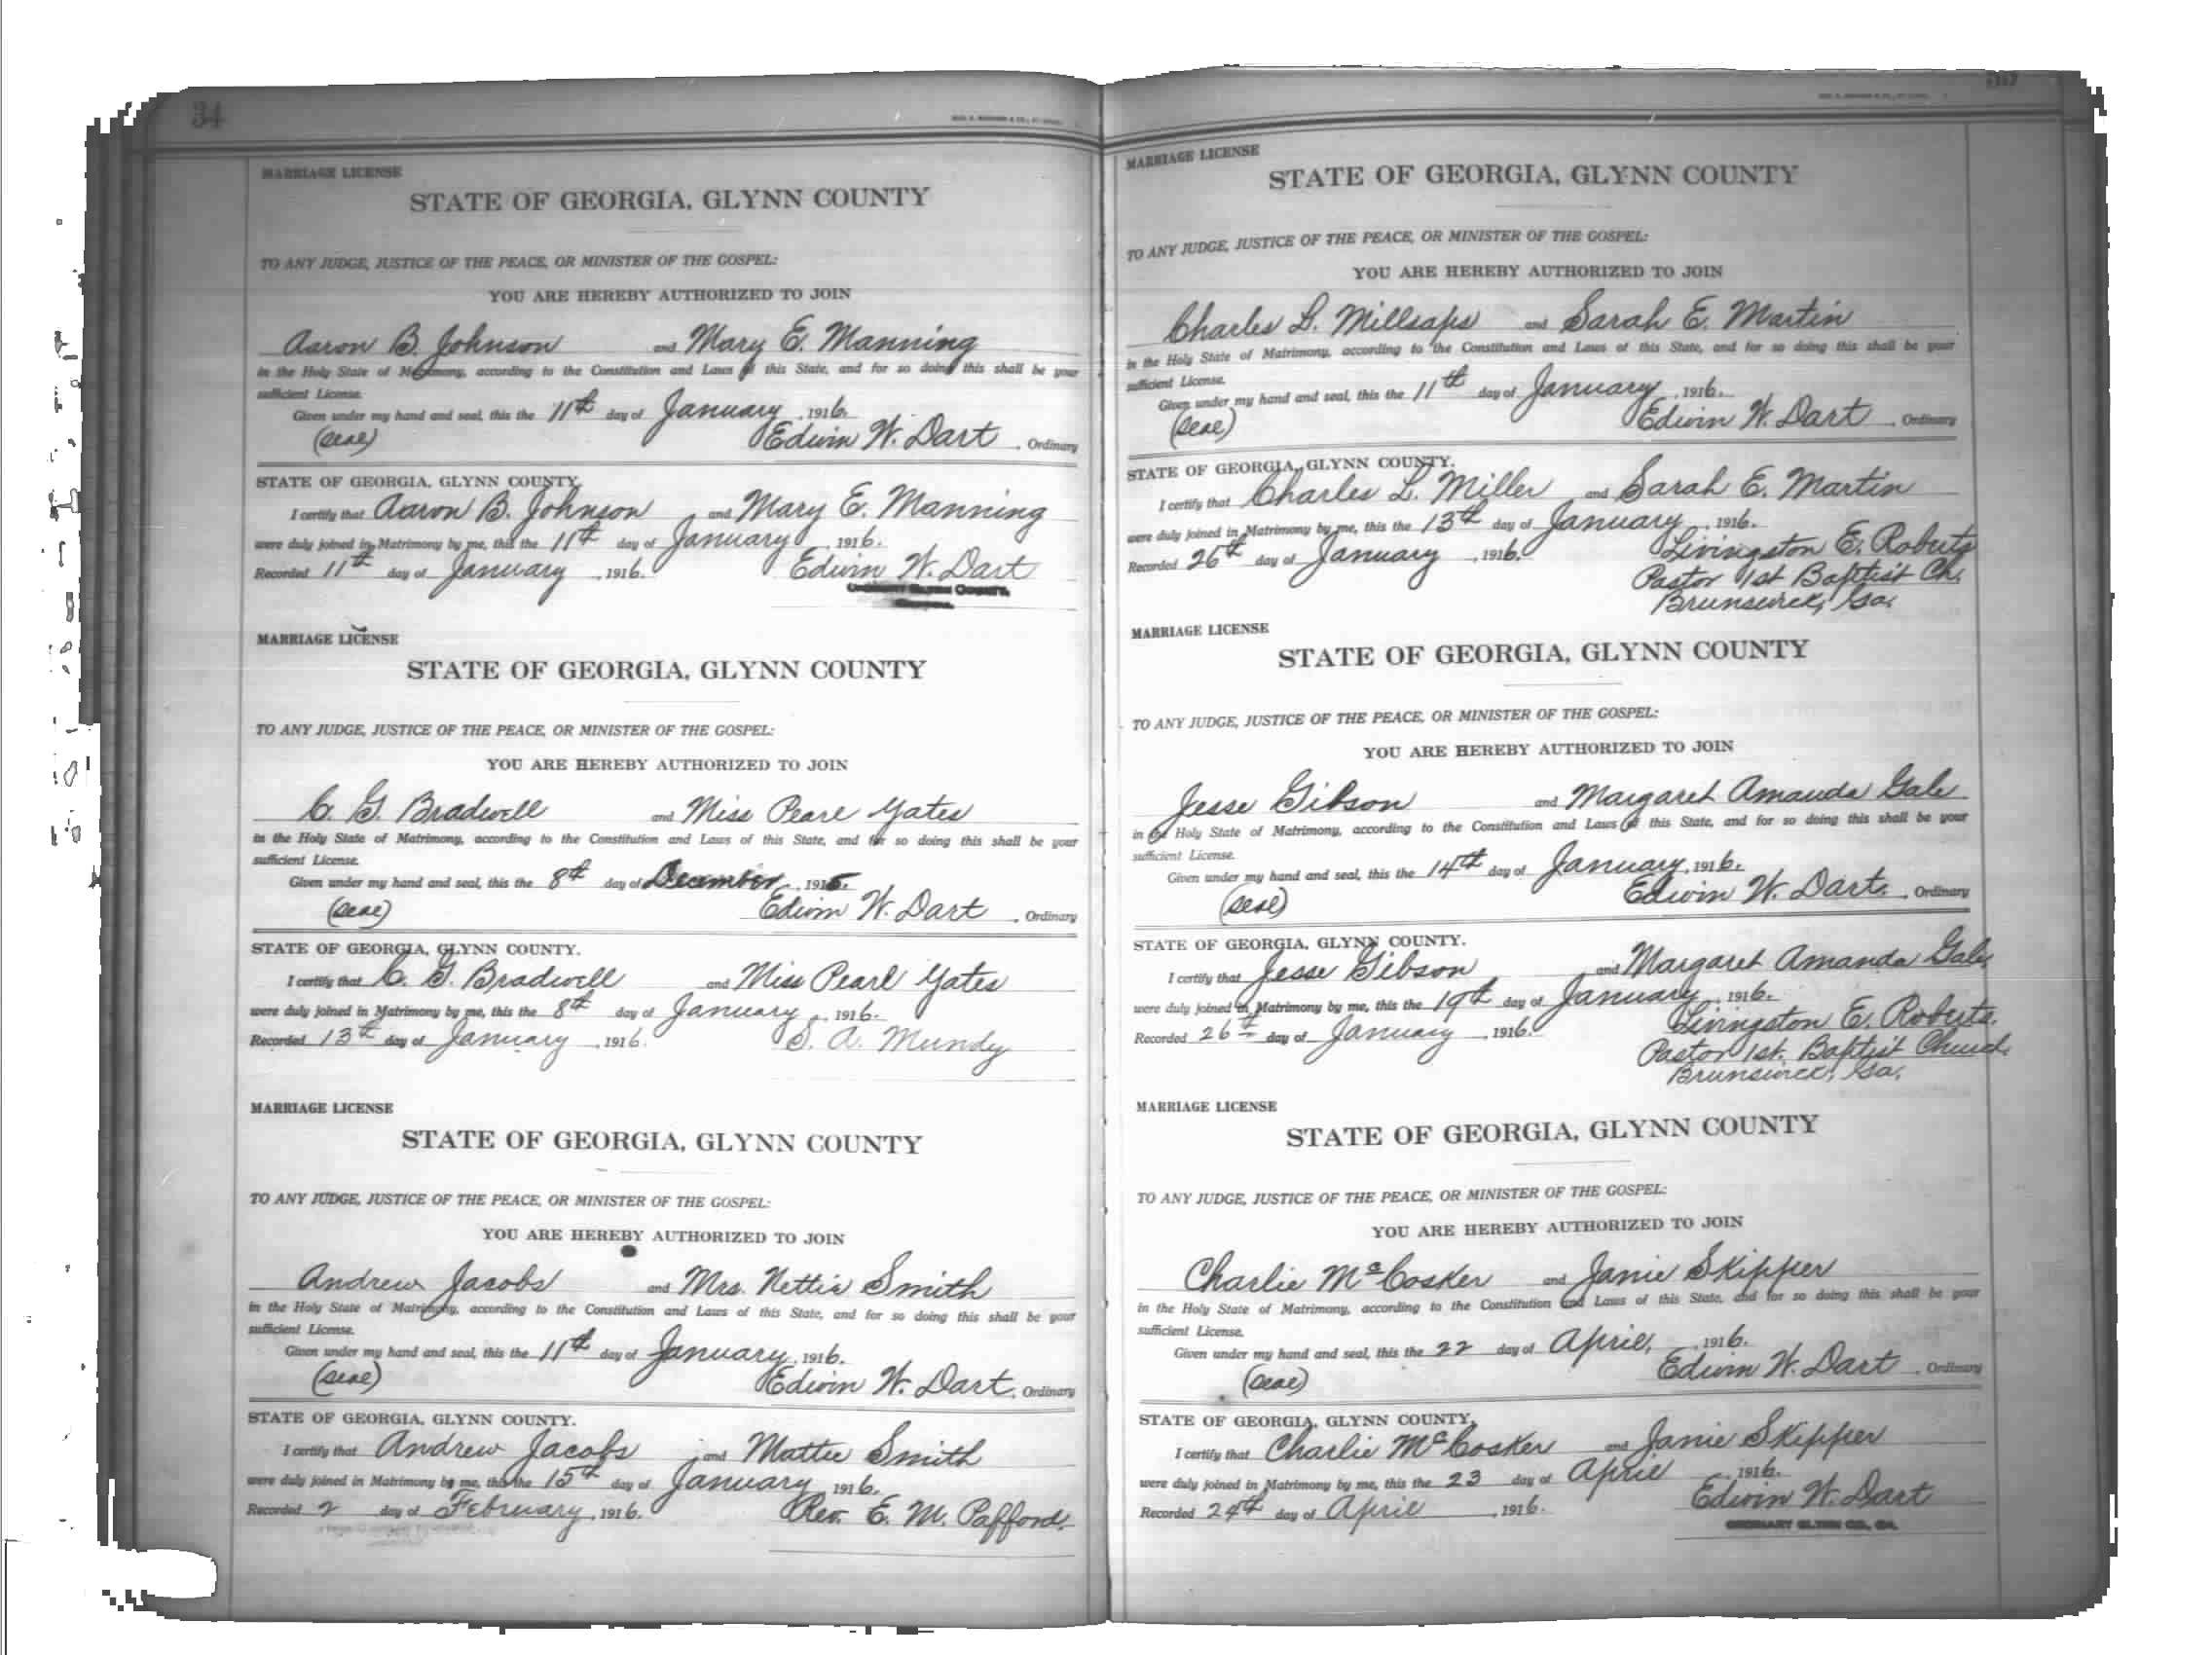 34
MARRIAGE LICENSE
STATE OF GEORGIA, GLYNN COUNTY
TO ANY JUDGE, JUSTICE OF THE PEACE, OR MINISTER OF THE GOSPEL:
YOU ARE HEREBY AUTHORIZED TO JOIN
Aaron B. Johnson and Mary E. Manning
in the Holy State of Matrimony, according to the Constitution and Laws of this State, and for so doing this shall be your
sufficient License.
Given under my hand and seal, this the 11th day of January, 1916.
(Seal) Edwin W. Dart, Ordinary
STATE OF GEORGIA, GLYNN COUNTY.
I certify that Aaron B. Johnson and Mary E. Manning
were duly joined in Matrimony by me, this the 11th day of January, 1916.
Recorded 11th day of January, 1916. Edwin W. Dart
MARRIAGE LICENSE
STATE OF GEORGIA, GLYNN COUNTY
TO ANY JUDGE, JUSTICE OF THE PEACE, OR MINISTER OF THE GOSPEL:
YOU ARE HEREBY AUTHORIZED TO JOIN
C. G. Bradwell and Miss Pearl Yates
in the Holy State of Matrimony, according to the Constitution and Laws of this State, and for so doing this shall be your
sufficient License.
Given under my hand and seal, this the 8th day of December, 1915.
(Seal) Edwin W. Dart, Ordinary
STATE OF GEORGIA, GLYNN COUNTY.
I certify that C. G. Bradwell and Miss Pearl Yates
were duly joined in Matrimony by me, this the 8th day of January, 1916.
Recorded 13th day of January, 1916. S. A. Mundy
MARRIAGE LICENSE
STATE OF GEORGIA, GLYNN COUNTY
TO ANY JUDGE, JUSTICE OF THE PEACE, OR MINISTER OF THE GOSPEL:
YOU ARE HEREBY AUTHORIZED TO JOIN
Andrew Jacobs and Mrs. Nettie Smith
in the Holy State of Matrimony, according to the Constitution and Laws of this State, and for so doing this shall be your
sufficient License.
Given under my hand and seal, this the 11th day of January, 1916.
(Seal) Edwin W. Dart, Ordinary
STATE OF GEORGIA, GLYNN COUNTY.
I certify that Andrew Jacobs and Mattie Smith
were duly joined in Matrimony by me, this the 15th day of January 1916.
Recorded 2 day of February, 1916. Rev. E. M. Pafford.
MARRIAGE LICENSE
STATE OF GEORGIA, GLYNN COUNTY
TO ANY JUDGE, JUSTICE OF THE PEACE, OR MINISTER OF THE GOSPEL:
YOU ARE HEREBY AUTHORIZED TO JOIN
Charles L. Millsaps and Sarah E. Martin
in the Holy State of Matrimony, according to the Constitution and Laws of this State, and for so doing this shall be your
sufficient License.
Given under my hand and seal, this the 11th day of January, 1916.
(Seal) Edwin W. Dart, Ordinary
STATE OF GEORGIA, GLYNN COUNTY.
I certify that Charles L. Miller and Sarah E. Martin
were duly joined in Matrimony by me, this the 13th day of January, 1916.
Recorded 26th day of January, 1916. Livingston E. Roberts
Pastor 1st Baptist Ch.
Brunswick, Ga.
MARRIAGE LICENSE
STATE OF GEORGIA, GLYNN COUNTY
TO ANY JUDGE, JUSTICE OF THE PEACE, OR MINISTER OF THE GOSPEL:
YOU ARE HEREBY AUTHORIZED TO JOIN
Jesse Gibson and Margaret Amanda Gale
in the Holy State of Matrimony, according to the Constitution and Laws of this State, and for so doing this shall be your
sufficient License.
Given under my hand and seal, this the 14th day of January, 1916.
(Seal) Edwin W. Dart, Ordinary
STATE OF GEORGIA, GLYNN COUNTY.
I certify that Jesse Gibson and Margaret Amanda Gale
were duly joined in Matrimony by me, this the 19th day of January, 1916.
Recorded 26th day of January, 1916. Livingston E. Roberts.
Pastor 1st. Baptist Church
Brunswick, Ga.
MARRIAGE LICENSE
STATE OF GEORGIA, GLYNN COUNTY
TO ANY JUDGE, JUSTICE OF THE PEACE, OR MINISTER OF THE GOSPEL:
YOU ARE HEREBY AUTHORIZED TO JOIN
Charlie McCosker and Janie Skipper
in the Holy State of Matrimony, according to the Constitution and Laws of this State, and for so doing this shall be your
sufficient License.
Given under my hand and seal, this the 22 day of April, 1916.
(Seal) Edwin W. Dart, Ordinary
STATE OF GEORGIA, GLYNN COUNTY.
I certify that Charlie McCosker and Janie Skipper
were duly joined in Matrimony by me, this the 23 day of April, 1916.
Recorded 24th day of April, 1916. Edwin W. Dart
ORDINARY GLYNN CO., GA.